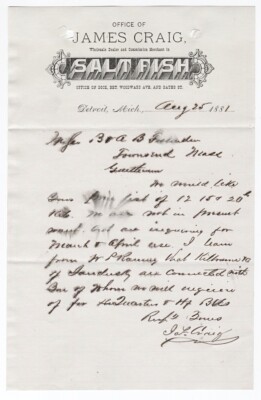 OFFICE OF
JAMES CRAIG,
Wholesale Dealer and Commission Merchant in
SALT FISH
OFFICE ON DOCK, BET. WOODWARD AVE. AND BATES ST.
Detroit, Mich., Aug 25 1881
B & A B
Townsend Mass
Gentlemen
We would like
Your of 12 15 & 20 lb
Kits. We are not in present
want but are inquiring for
March & April use. I learn
from W P that
of Sandusky are connected with
of Whom we will enquire
of for & Hf Bbls
Resp Yours
Craig